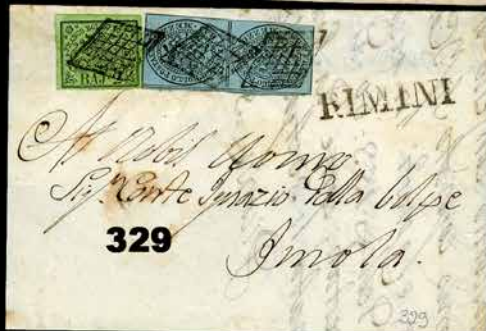 BAJ
RIMINI
Al Nobil Uomo
Sig.r Conte Ignazio Della Volpe
Imola.
329
329